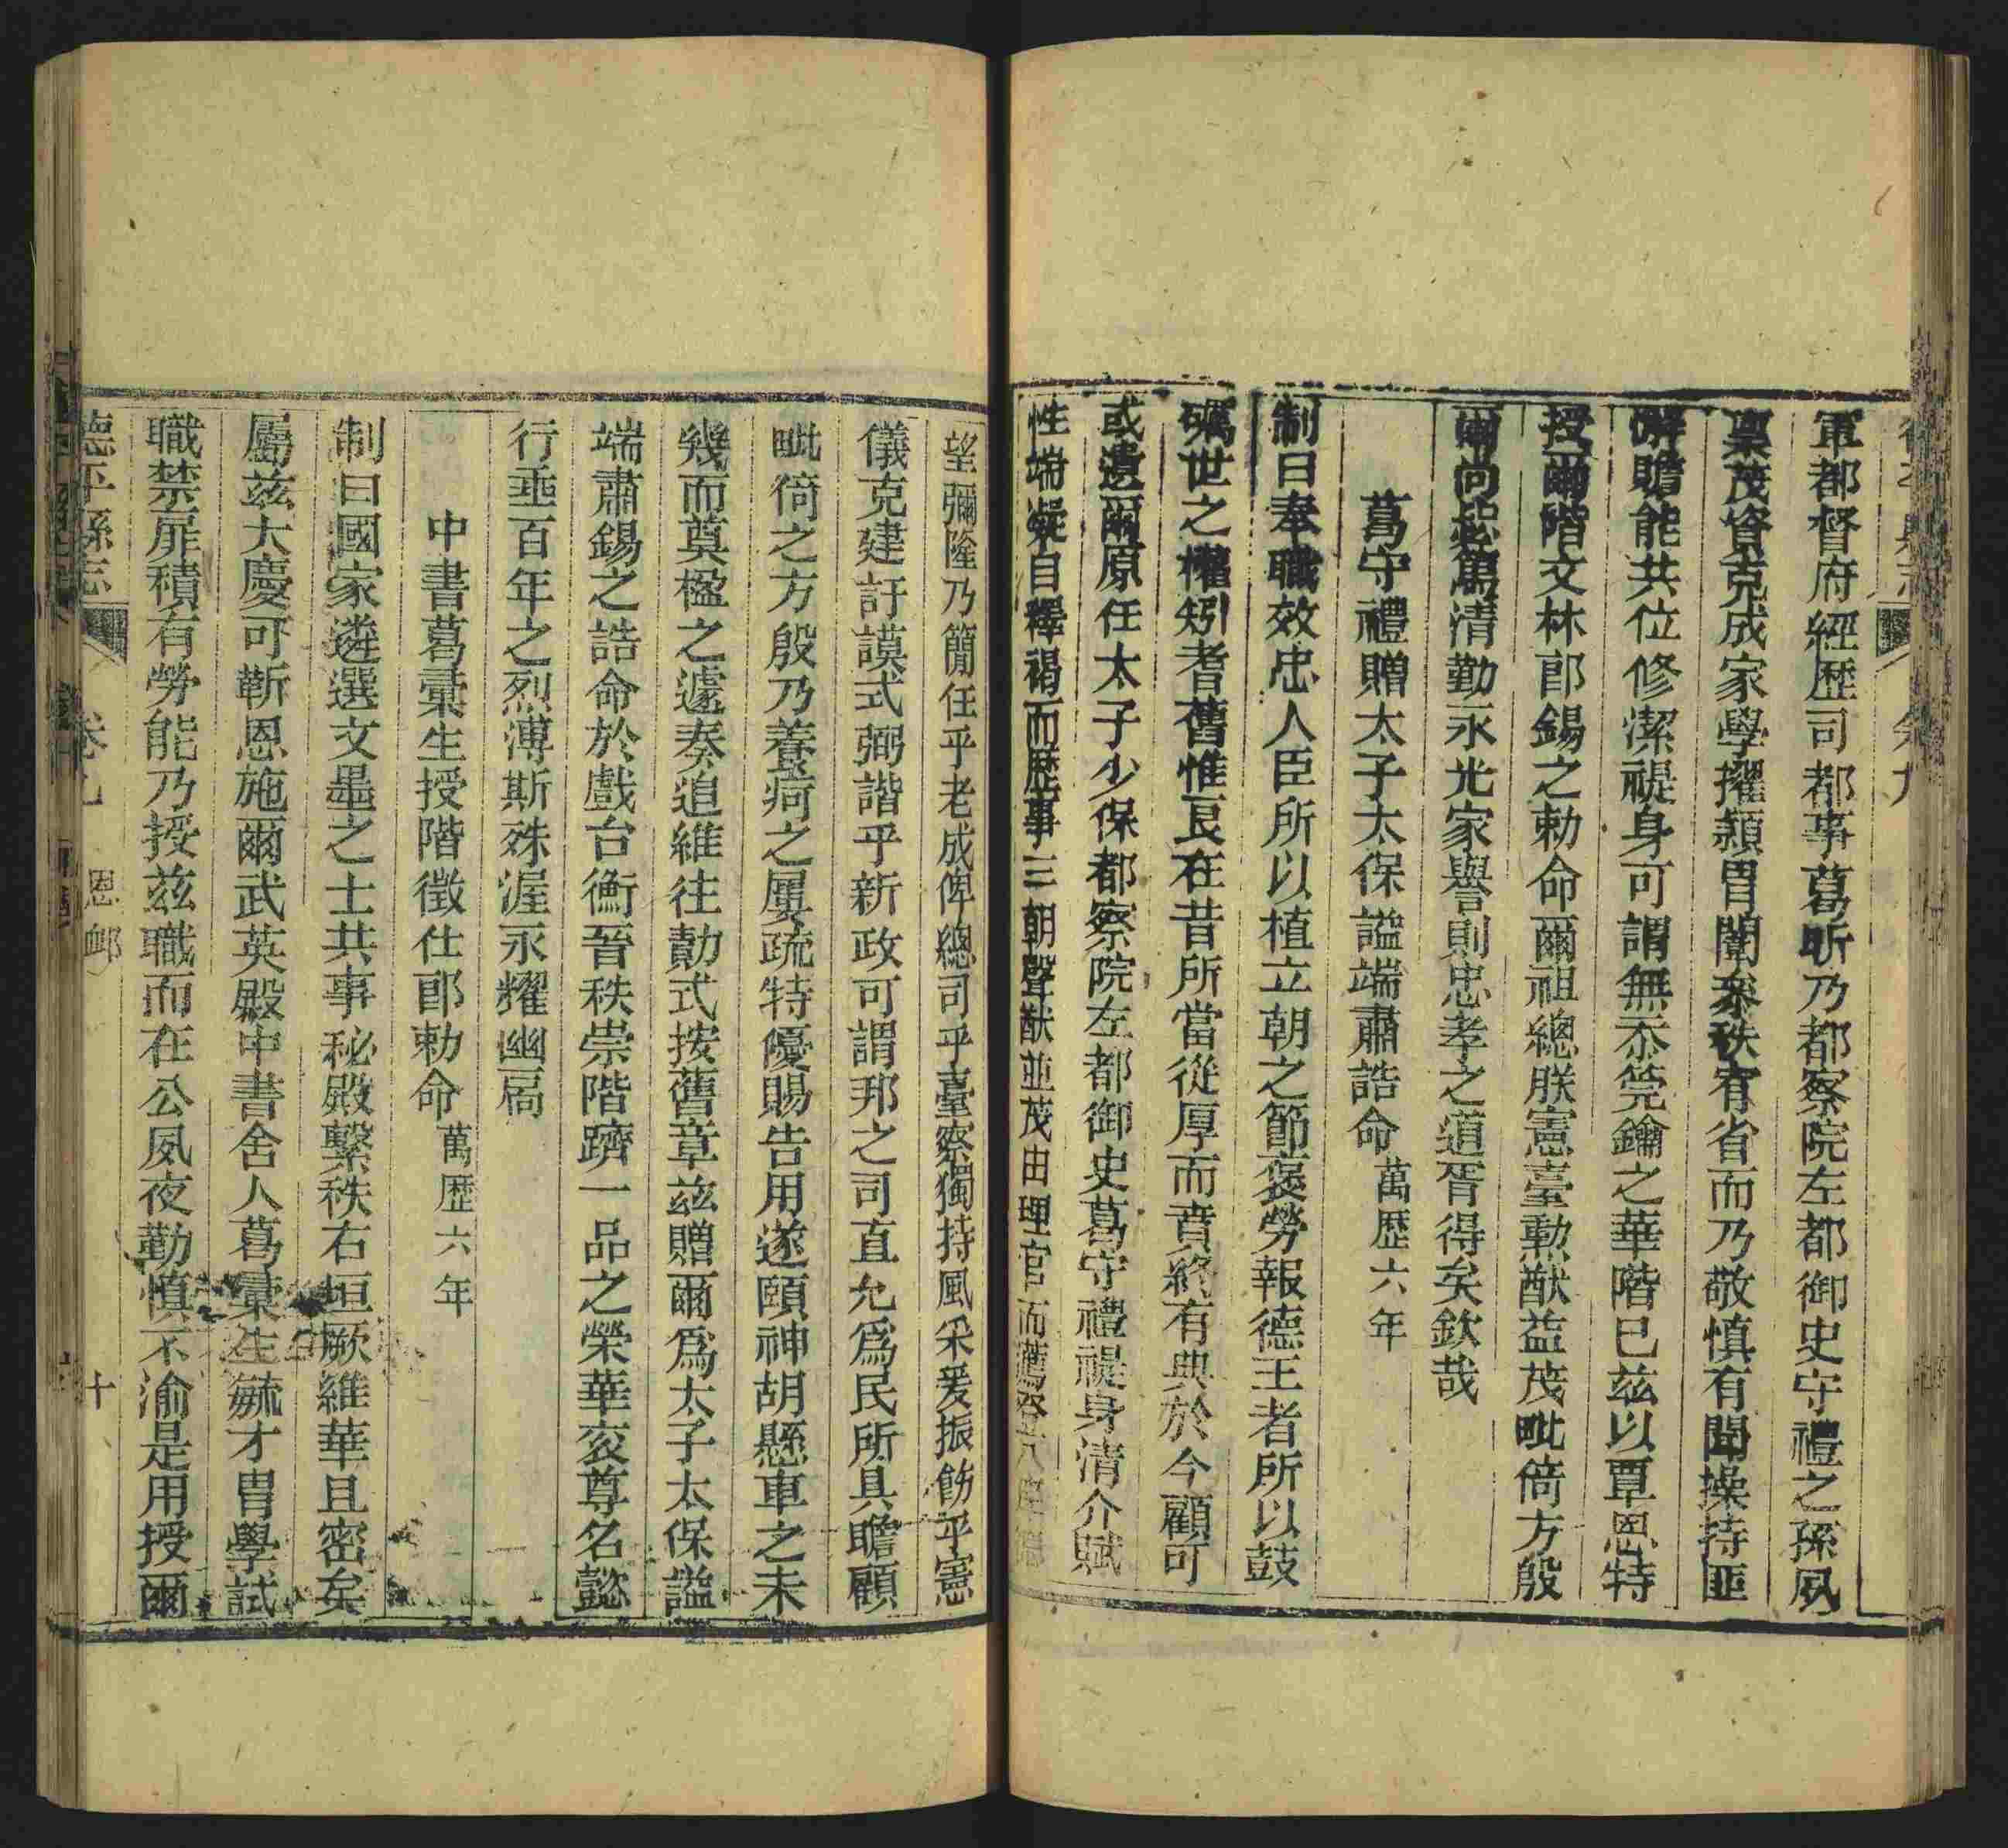 軍都督府經歷司都事葛昕乃都察院左都御史守禮之孫夙
稟茂資克成家學擢穎胄闈叅秩宥省而乃敬慎有聞操持匪
懈贍能共位修潔禔身可謂無忝筦鑰之華階巳兹以覃恩特
授爾階文林郎錫之勅命爾祖總朕憲臺勲猷益茂毗倚方殷
爾尚懋篤清勤永光家譽則忠孝之道胥得矣欽哉
葛守禮贈太子太保謚端肅誥命萬歷六年
制曰奉職效忠人臣所以植立朝之節褒勞報德王者所以鼓
礪世之權矧耆舊惟良在昔所當從厚而賁終有典於今顧可
或遺爾原任太子少保都察院左都御史葛守禮禔身清介賦
性端凝自釋褐而歷事三朝聲猷並茂由理官而薦登八座
望彌隆乃簡任乎老成俾總司乎臺察獨持風采爰振飭乎憲
儀克建訏謨式弼諧乎新政可謂邦之司直允爲民所具瞻顧
毗倚之方殷乃養疴之屢疏特優賜告用遂頤神胡懸車之未
幾而奠楹之遽奏追維往勩式按舊章兹贈爾爲太子太保謚
端肅錫之誥命於戲台衡晉秩崇階躋一品之榮華衮尊名懿
行垂百年之烈溥斯殊渥永耀幽扃
中書葛彙生授階徵仕郎勅命萬歷六年
制曰國家遴選文墨之士共事秘殿繫秩右垣厥維華且密矣
屬兹大慶可靳恩施爾武英殿中書舍人葛彙生毓才胄學試
職禁扉積有勞能乃授兹職而在公夙夜勤慎不渝是用授爾
德平縣志 卷九 恩卹 十